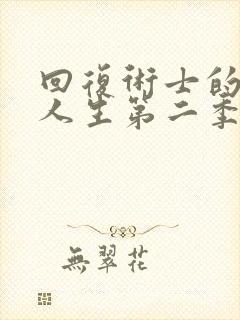 回復術士的
人生第二季
無翠花